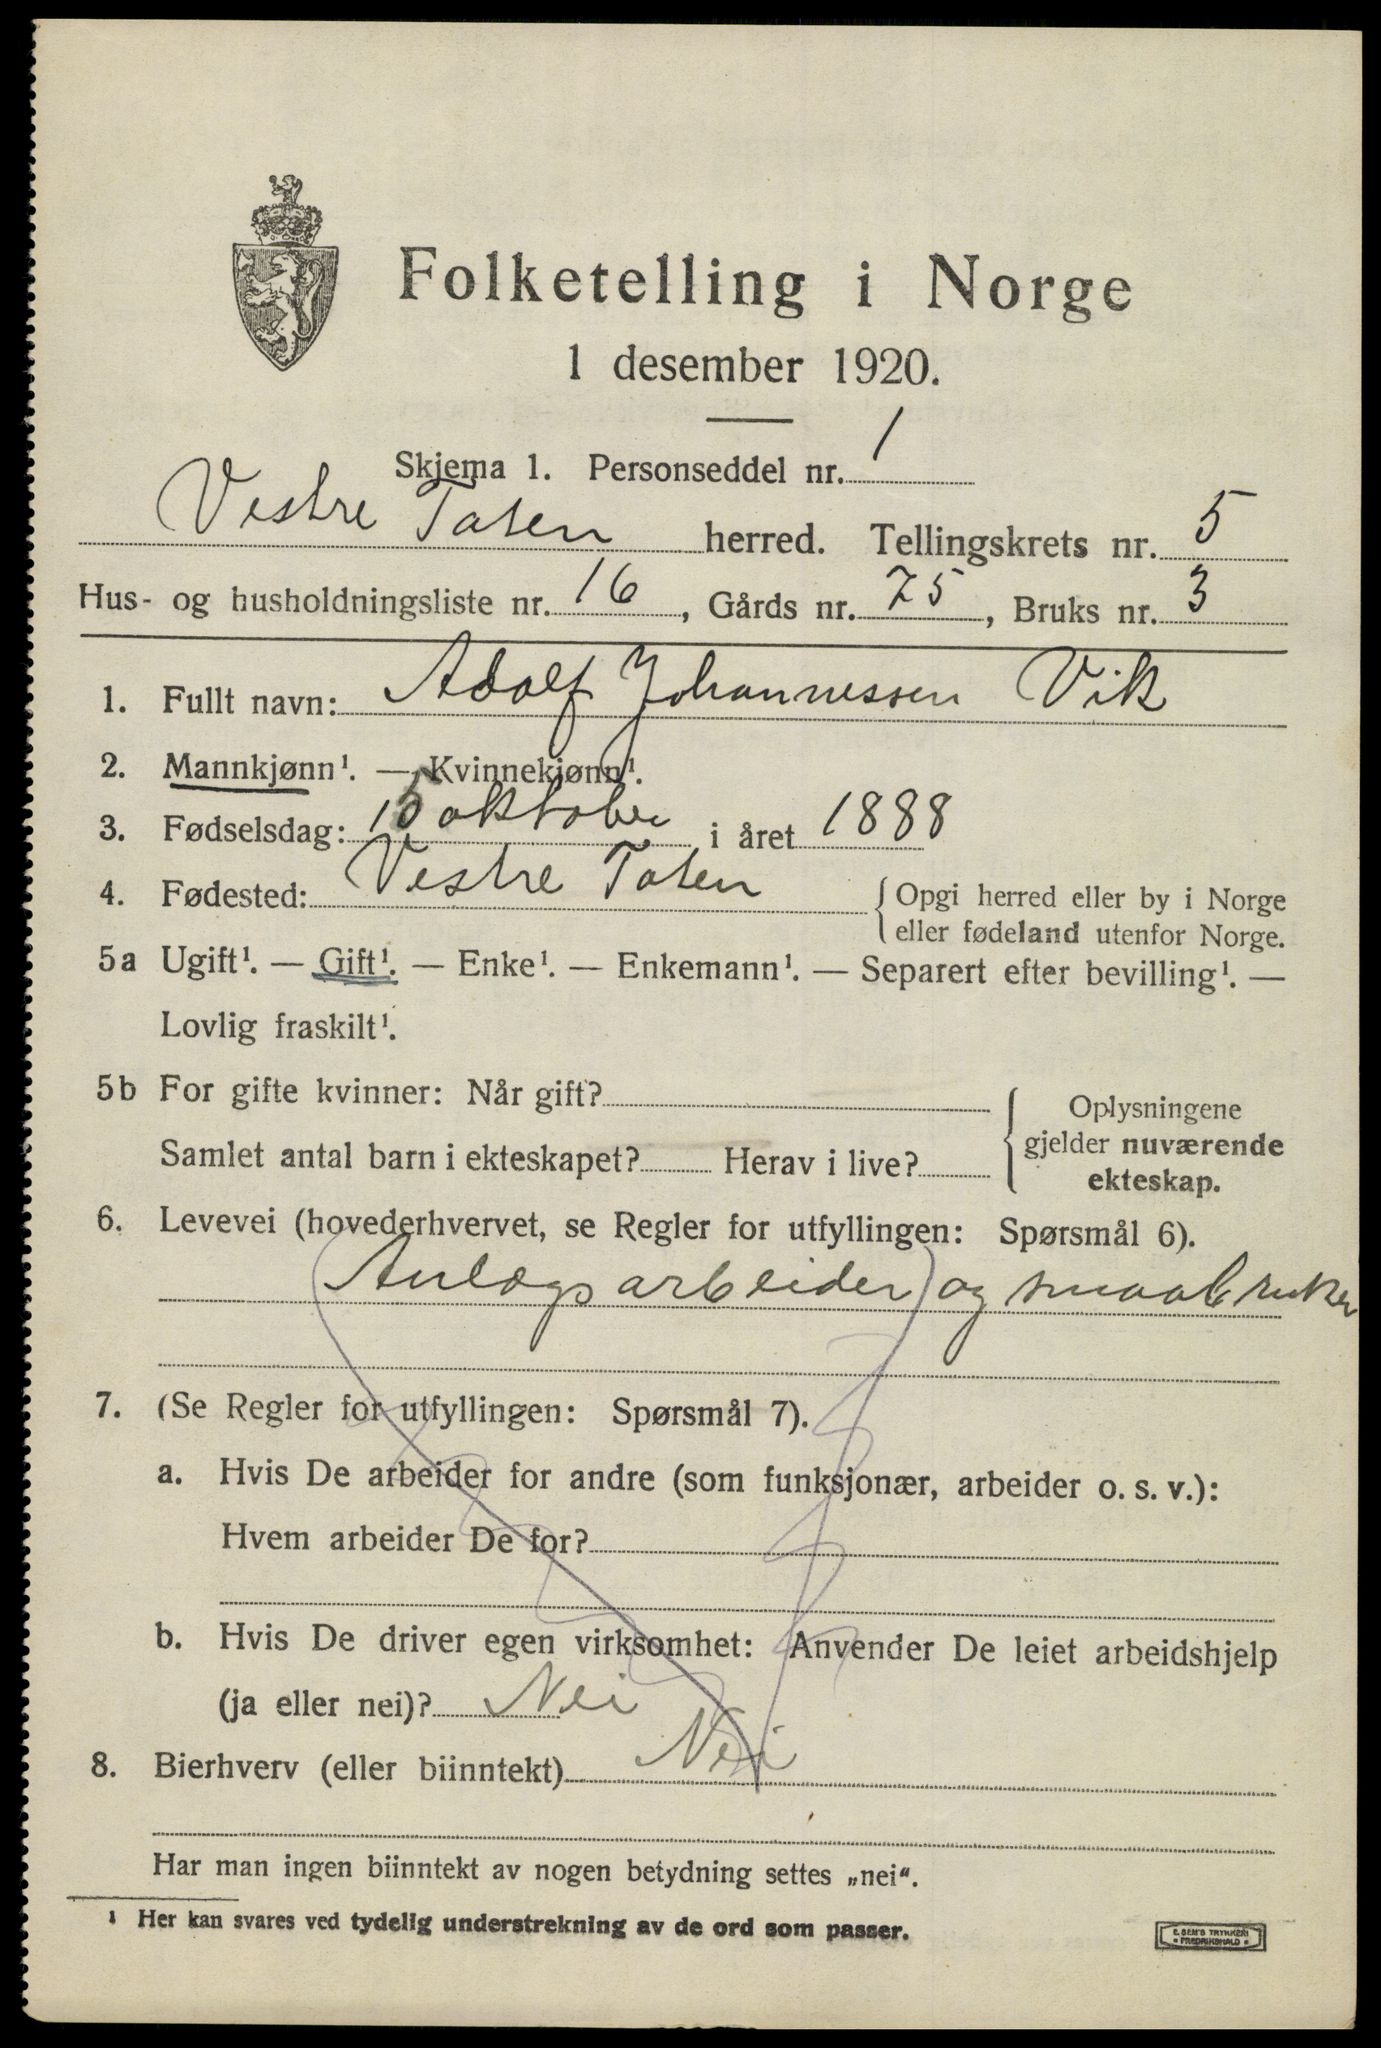 Folketelling i Norge
1 desember 1920.
Skjema 1. Personseddel nr. 1
Vestre Toten herred. Tellingskrets nr. 5
Hus- og husholdningsliste nr. 16, Gårds nr. 75, Bruks nr. 3
1. Fullt navn: Adolf Johannessen Vik
2. Mannkjønn¹. — Kvinnekjønn¹.
3. Fødselsdag: 15 oktober i året 1888
4. Fødested: Vestre Toten {Opgi herred eller by i Norge
eller fødeland utenfor Norge.
5a Ugift¹. — Gift¹. — Enke¹. — Enkemann¹. — Separert efter bevilling¹. —
Lovlig fraskilt¹.
5b For gifte kvinner: Når gift? { Oplysningene
gjelder nuværende
Samlet antal barn i ekteskapet? Herav i live?
ekteskap.
6. Levevei (hovederhvervet, se Regler for utfyllingen: Spørsmål 6).
(Anlægsarbeider) og smaabruker
7. (Se Regler for utfyllingen: Spørsmål 7).
a. Hvis De arbeider for andre (som funksjonær, arbeider o. s. v.):
Hvem arbeider De for?
b. Hvis De driver egen virksomhet: Anvender De leiet arbeidshjelp
(ja eller nei)? Nei
8. Bierhverv (eller biinntekt) Nei
Har man ingen biinntekt av nogen betydning settes „nei“.
¹ Her kan svares ved tydelig understrekning av de ord som passer.
E. SEM'S TRYKKERI
FREDRIKSHALD